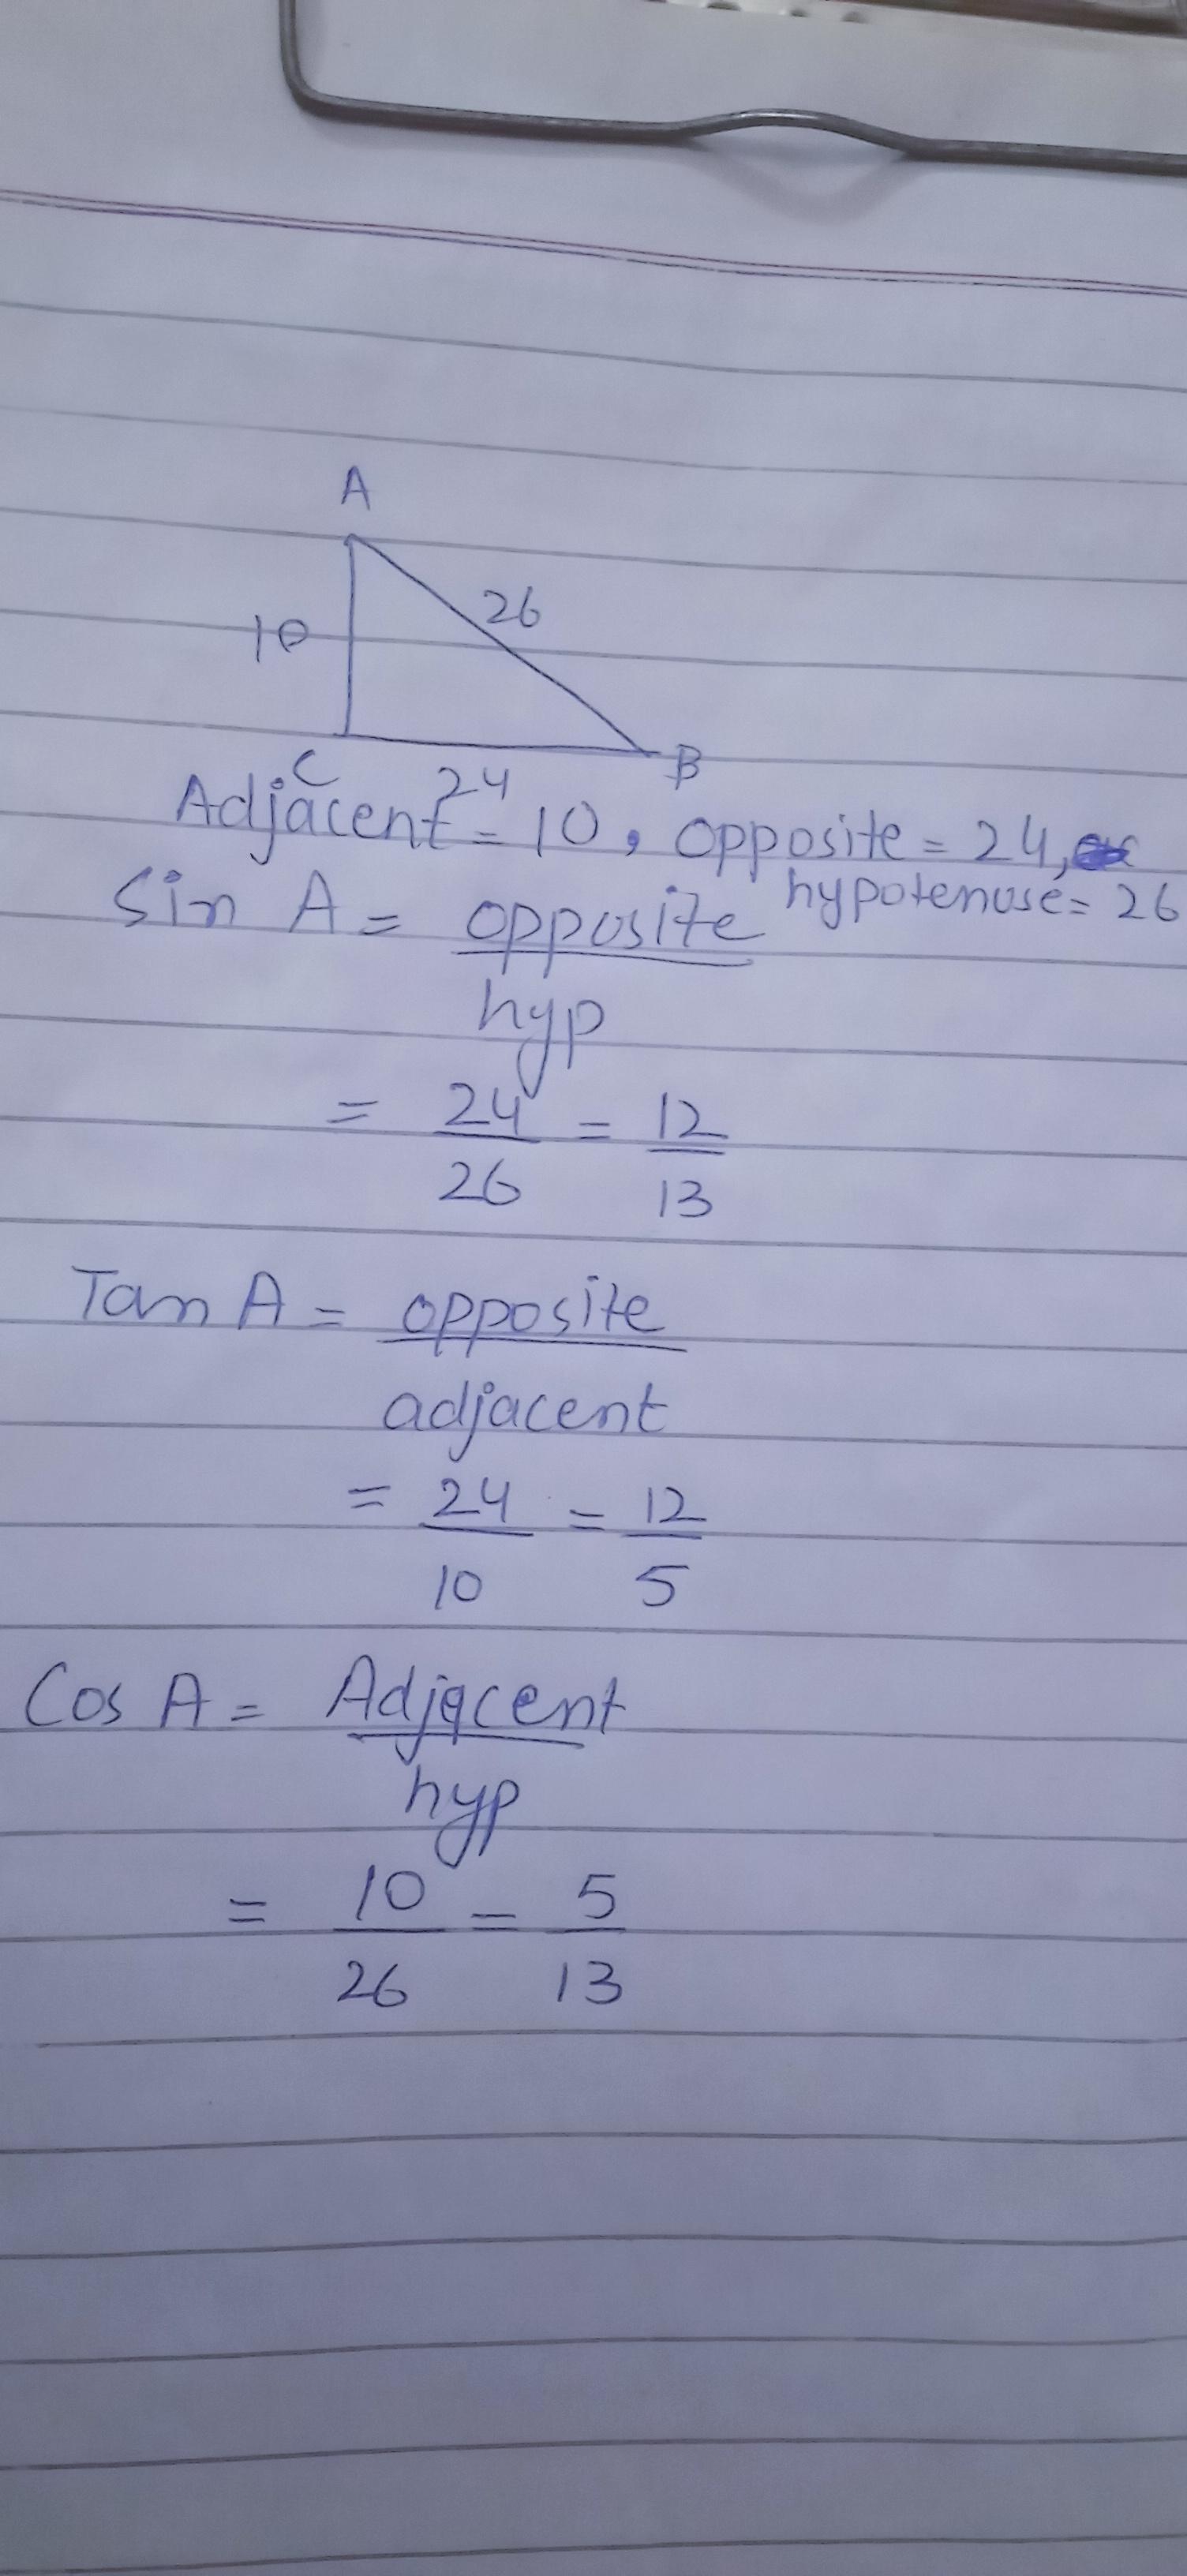 A
26
10
C
24
B
Adjacent = 10, opposite = 24,
hypotenuse = 26
Sin A = opposite
hyp
= 24 = 12
26 13
Tan A = opposite
adjacent
= 24 = 12
10 5
Cos A = Adjacent
hyp
= 10 = 5
26 13